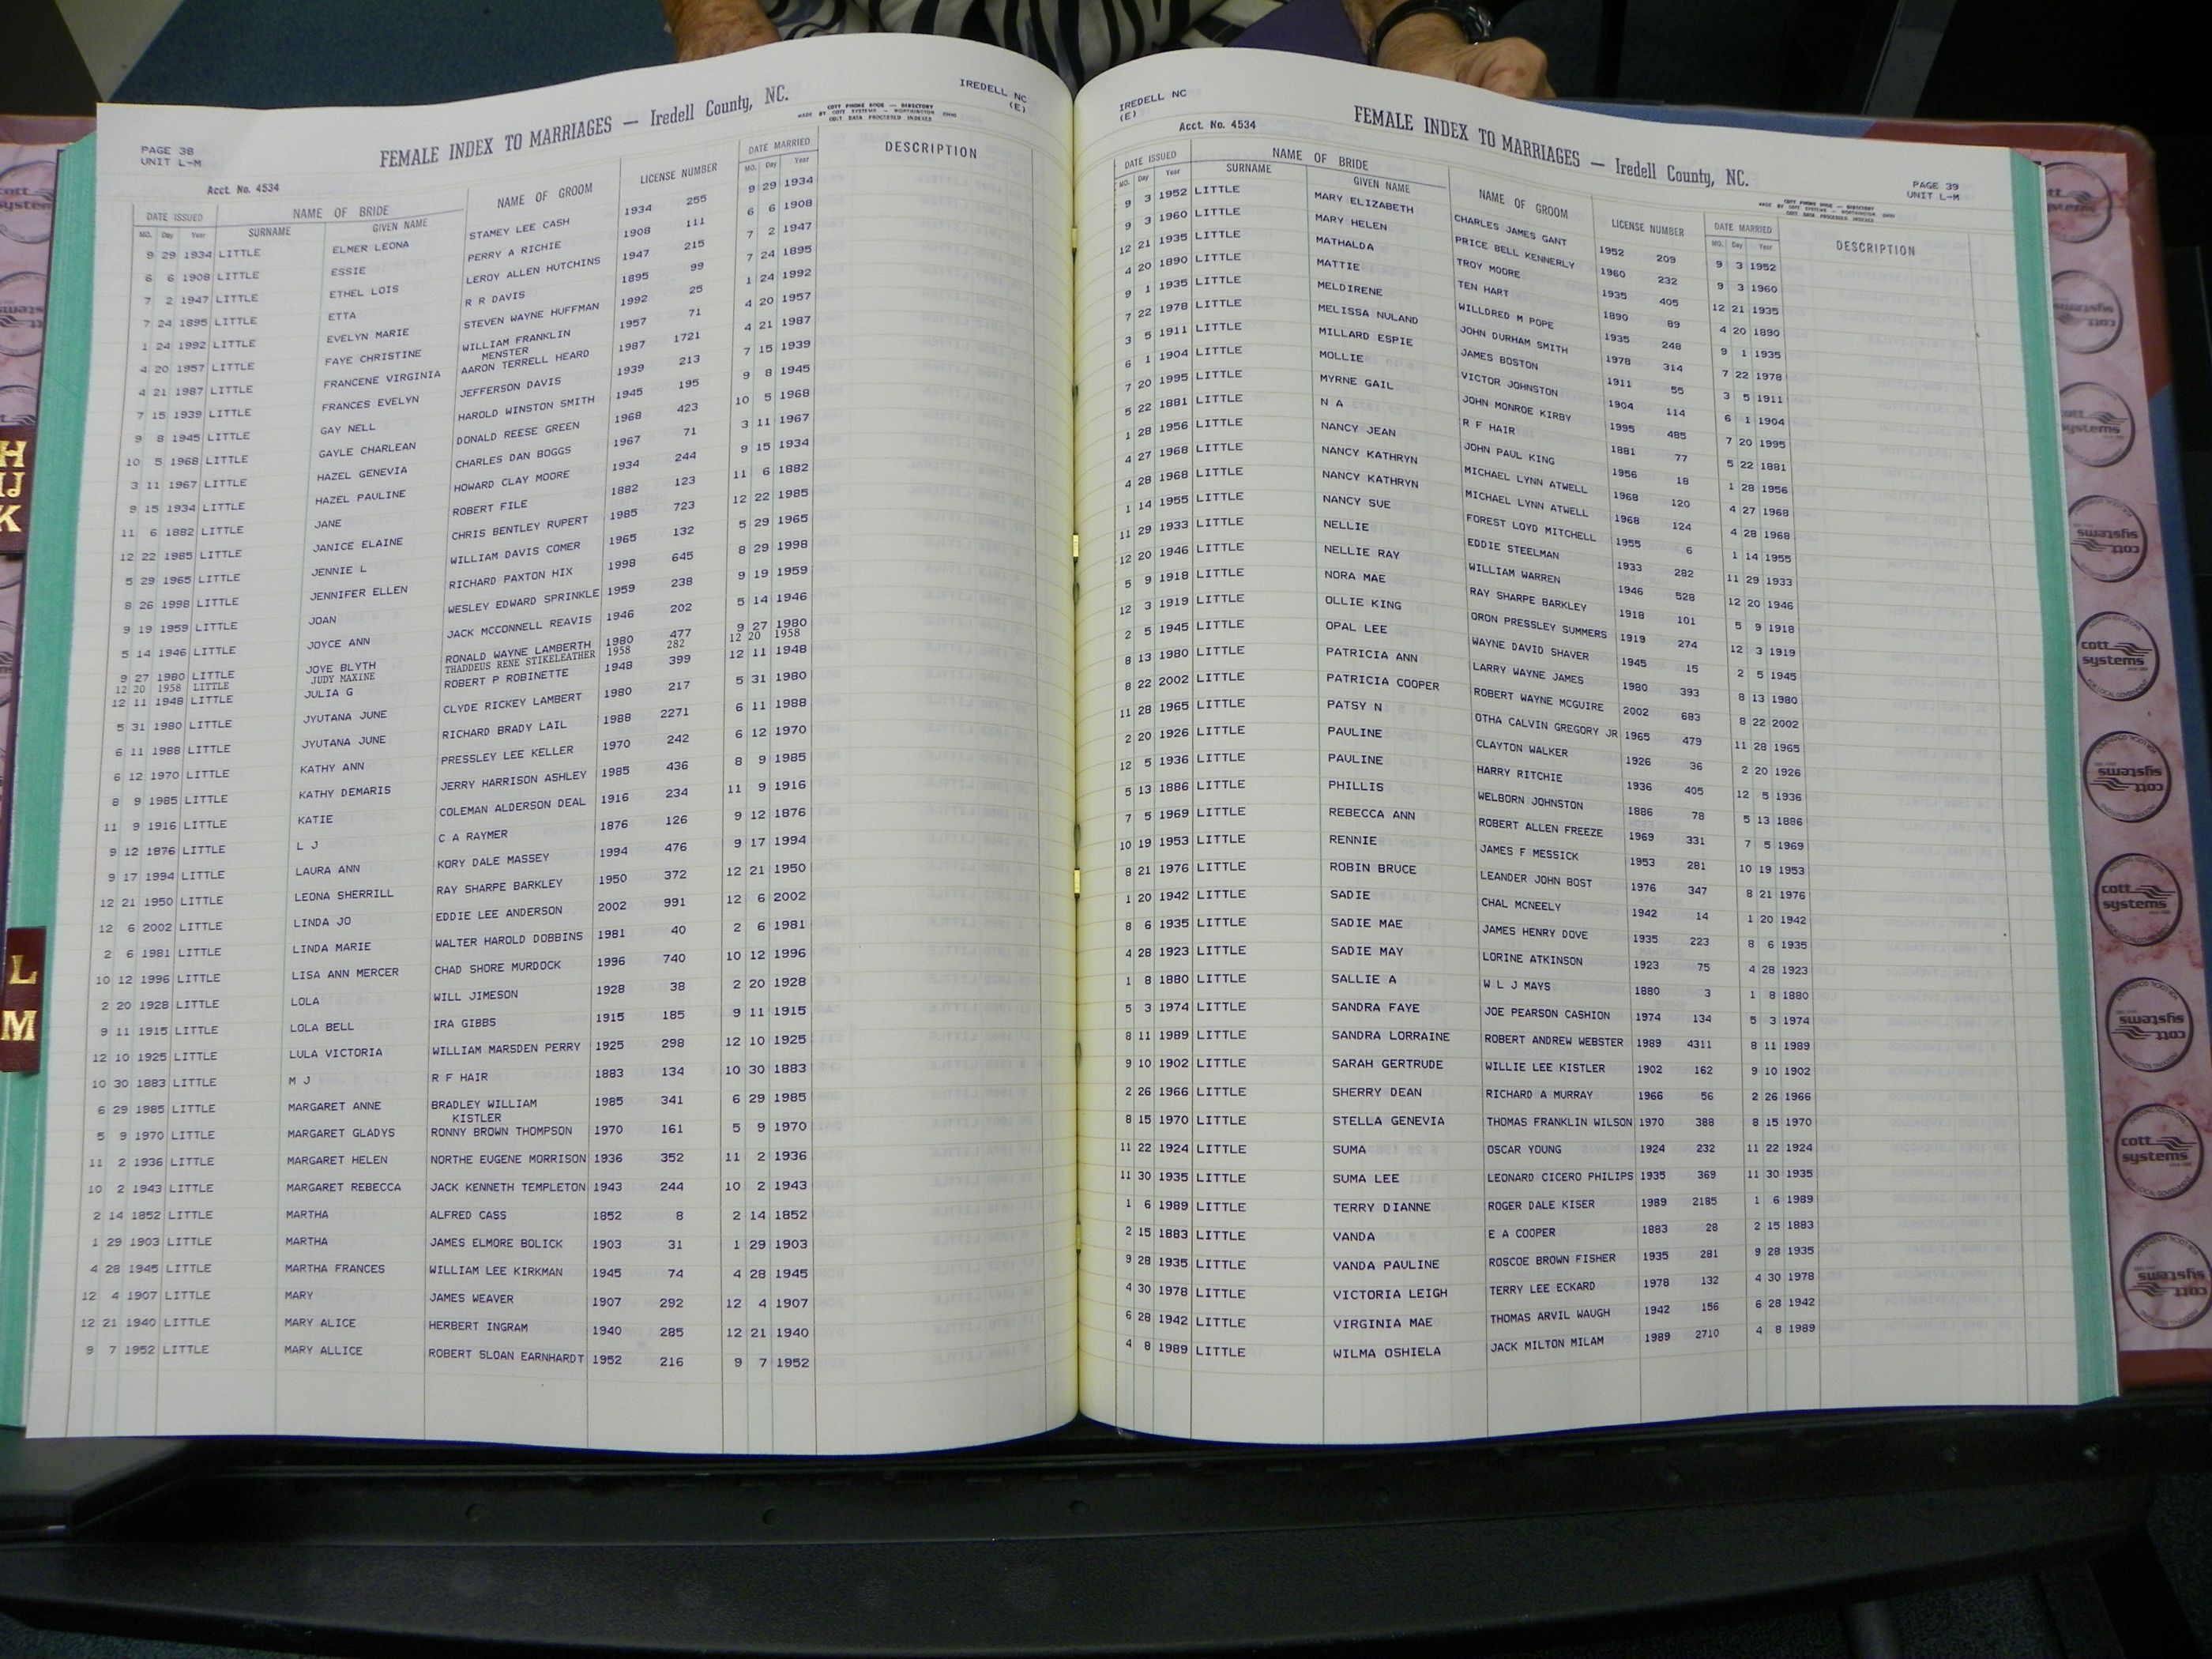 IREDELL NC
(E)
FEMALE INDEX TO MARRIAGES — Iredell County, NC.
COTT PHONE BOOK — DIRECTORY
MADE BY COTT SYSTEMS — WORTHINGTON OHIO
COTT DATA PROCESSED INDEXES
PAGE 38
UNIT L-M
Acct. No. 4534
DATE ISSUED NAME OF BRIDE NAME OF GROOM LICENSE NUMBER DATE MARRIED DESCRIPTION
MO. Day Year SURNAME GIVEN NAME MO. Day Year
9 29 1934 LITTLE ELMER LEONA STAMEY LEE CASH 1934 255 9 29 1934
6 6 1908 LITTLE ESSIE PERRY A RICHIE 1908 111 6 6 1908
7 2 1947 LITTLE ETHEL LOIS LEROY ALLEN HUTCHINS 1947 215 7 2 1947
7 24 1895 LITTLE ETTA R R DAVIS 1895 99 7 24 1895
1 24 1992 LITTLE EVELYN MARIE STEVEN WAYNE HUFFMAN 1992 25 1 24 1992
4 20 1957 LITTLE FAYE CHRISTINE WILLIAM FRANKLIN 1957 71 4 20 1957
MENSTER
4 21 1987 LITTLE FRANCENE VIRGINIA AARON TERRELL HEARD 1987 1721 4 21 1987
7 15 1939 LITTLE FRANCES EVELYN JEFFERSON DAVIS 1939 213 7 15 1939
9 8 1945 LITTLE GAY NELL HAROLD WINSTON SMITH 1945 195 9 8 1945
10 5 1968 LITTLE GAYLE CHARLEAN DONALD REESE GREEN 1968 423 10 5 1968
3 11 1967 LITTLE HAZEL GENEVIA CHARLES DAN BOGGS 1967 71 3 11 1967
9 15 1934 LITTLE HAZEL PAULINE HOWARD CLAY MOORE 1934 244 9 15 1934
11 6 1882 LITTLE JANE ROBERT FILE 1882 123 11 6 1882
12 22 1985 LITTLE JANICE ELAINE CHRIS BENTLEY RUPERT 1985 723 12 22 1985
5 29 1965 LITTLE JENNIE L WILLIAM DAVIS COMER 1965 132 5 29 1965
8 26 1998 LITTLE JENNIFER ELLEN RICHARD PAXTON HIX 1998 645 8 29 1998
9 19 1959 LITTLE JOAN WESLEY EDWARD SPRINKLE 1959 238 9 19 1959
5 14 1946 LITTLE JOYCE ANN JACK MCCONNELL REAVIS 1946 202 5 14 1946
9 27 1980 LITTLE JOYE BLYTH RONALD WAYNE LAMBERTH 1980 477 9 27 1980
12 20 1958 LITTLE JUDY MAXINE THADDEUS RENE STIKELEATHER 1958 282 12 20 1958
12 11 1948 LITTLE JULIA G ROBERT P ROBINETTE 1948 399 12 11 1948
5 31 1980 LITTLE JYUTANA JUNE CLYDE RICKEY LAMBERT 1980 217 5 31 1980
6 11 1988 LITTLE JYUTANA JUNE RICHARD BRADY LAIL 1988 2271 6 11 1988
6 12 1970 LITTLE KATHY ANN PRESSLEY LEE KELLER 1970 242 6 12 1970
8 9 1985 LITTLE KATHY DEMARIS JERRY HARRISON ASHLEY 1985 436 8 9 1985
11 9 1916 LITTLE KATIE COLEMAN ALDERSON DEAL 1916 234 11 9 1916
9 12 1876 LITTLE L J C A RAYMER 1876 126 9 12 1876
9 17 1994 LITTLE LAURA ANN KORY DALE MASSEY 1994 476 9 17 1994
12 21 1950 LITTLE LEONA SHERRILL RAY SHARPE BARKLEY 1950 372 12 21 1950
12 6 2002 LITTLE LINDA JO EDDIE LEE ANDERSON 2002 991 12 6 2002
2 6 1981 LITTLE LINDA MARIE WALTER HAROLD DOBBINS 1981 40 2 6 1981
10 12 1996 LITTLE LISA ANN MERCER CHAD SHORE MURDOCK 1996 740 10 12 1996
2 20 1928 LITTLE LOLA WILL JIMESON 1928 38 2 20 1928
9 11 1915 LITTLE LOLA BELL IRA GIBBS 1915 185 9 11 1915
12 10 1925 LITTLE LULA VICTORIA WILLIAM MARSDEN PERRY 1925 298 12 10 1925
10 30 1883 LITTLE M J R F HAIR 1883 134 10 30 1883
6 29 1985 LITTLE MARGARET ANNE BRADLEY WILLIAM 1985 341 6 29 1985
KISTLER
5 9 1970 LITTLE MARGARET GLADYS RONNY BROWN THOMPSON 1970 161 5 9 1970
11 2 1936 LITTLE MARGARET HELEN NORTHE EUGENE MORRISON 1936 352 11 2 1936
10 2 1943 LITTLE MARGARET REBECCA JACK KENNETH TEMPLETON 1943 244 10 2 1943
2 14 1852 LITTLE MARTHA ALFRED CASS 1852 8 2 14 1852
1 29 1903 LITTLE MARTHA JAMES ELMORE BOLICK 1903 31 1 29 1903
4 28 1945 LITTLE MARTHA FRANCES WILLIAM LEE KIRKMAN 1945 74 4 28 1945
12 4 1907 LITTLE MARY JAMES WEAVER 1907 292 12 4 1907
12 21 1940 LITTLE MARY ALICE HERBERT INGRAM 1940 285 12 21 1940
9 7 1952 LITTLE MARY ALLICE ROBERT SLOAN EARNHARDT 1952 216 9 7 1952
IREDELL NC
(E)
Acct. No. 4534
FEMALE INDEX TO MARRIAGES — Iredell County, NC.
PAGE 39
UNIT L-M
COTT PHONE BOOK — DIRECTORY
MADE BY COTT SYSTEMS — WORTHINGTON OHIO
COTT DATA PROCESSED INDEXES
DATE ISSUED NAME OF BRIDE NAME OF GROOM LICENSE NUMBER DATE MARRIED DESCRIPTION
MO. Day Year SURNAME GIVEN NAME MO. Day Year
9 3 1952 LITTLE MARY ELIZABETH CHARLES JAMES GANT 1952 209 9 3 1952
9 3 1960 LITTLE MARY HELEN PRICE BELL KENNERLY 1960 232 9 3 1960
12 21 1935 LITTLE MATHALDA TROY MOORE 1935 405 12 21 1935
4 20 1890 LITTLE MATTIE TEN HART 1890 89 4 20 1890
9 1 1935 LITTLE MELDIRENE WILLDRED M POPE 1935 248 9 1 1935
7 22 1978 LITTLE MELISSA NULAND JOHN DURHAM SMITH 1978 314 7 22 1978
3 5 1911 LITTLE MILLARD ESPIE JAMES BOSTON 1911 55 3 5 1911
6 1 1904 LITTLE MOLLIE VICTOR JOHNSTON 1904 114 6 1 1904
7 20 1995 LITTLE MYRNE GAIL JOHN MONROE KIRBY 1995 485 7 20 1995
5 22 1881 LITTLE N A R F HAIR 1881 77 5 22 1881
1 28 1956 LITTLE NANCY JEAN JOHN PAUL KING 1956 18 1 28 1956
4 27 1968 LITTLE NANCY KATHRYN MICHAEL LYNN ATWELL 1968 120 4 27 1968
4 28 1968 LITTLE NANCY KATHRYN MICHAEL LYNN ATWELL 1968 124 4 28 1968
1 14 1955 LITTLE NANCY SUE FOREST LOYD MITCHELL 1955 6 1 14 1955
11 29 1933 LITTLE NELLIE EDDIE STEELMAN 1933 282 11 29 1933
12 20 1946 LITTLE NELLIE RAY WILLIAM WARREN 1946 528 12 20 1946
5 9 1918 LITTLE NORA MAE RAY SHARPE BARKLEY 1918 101 5 9 1918
12 3 1919 LITTLE OLLIE KING ORON PRESSLEY SUMMERS 1919 274 12 3 1919
2 5 1945 LITTLE OPAL LEE WAYNE DAVID SHAVER 1945 15 2 5 1945
8 13 1980 LITTLE PATRICIA ANN LARRY WAYNE JAMES 1980 393 8 13 1980
8 22 2002 LITTLE PATRICIA COOPER ROBERT WAYNE MCGUIRE 2002 683 8 22 2002
11 28 1965 LITTLE PATSY N OTHA CALVIN GREGORY JR 1965 479 11 28 1965
2 20 1926 LITTLE PAULINE CLAYTON WALKER 1926 36 2 20 1926
12 5 1936 LITTLE PAULINE HARRY RITCHIE 1936 405 12 5 1936
5 13 1886 LITTLE PHILLIS WELBORN JOHNSTON 1886 78 5 13 1886
7 5 1969 LITTLE REBECCA ANN ROBERT ALLEN FREEZE 1969 331 7 5 1969
10 19 1953 LITTLE RENNIE JAMES F MESSICK 1953 281 10 19 1953
8 21 1976 LITTLE ROBIN BRUCE LEANDER JOHN BOST 1976 347 8 21 1976
1 20 1942 LITTLE SADIE CHAL MCNEELY 1942 14 1 20 1942
8 6 1935 LITTLE SADIE MAE JAMES HENRY DOVE 1935 223 8 6 1935
4 28 1923 LITTLE SADIE MAY LORINE ATKINSON 1923 75 4 28 1923
1 8 1880 LITTLE SALLIE A W L J MAYS 1880 3 1 8 1880
5 3 1974 LITTLE SANDRA FAYE JOE PEARSON CASHION 1974 134 5 3 1974
8 11 1989 LITTLE SANDRA LORRAINE ROBERT ANDREW WEBSTER 1989 4311 8 11 1989
9 10 1902 LITTLE SARAH GERTRUDE WILLIE LEE KISTLER 1902 162 9 10 1902
2 26 1966 LITTLE SHERRY DEAN RICHARD A MURRAY 1966 56 2 26 1966
8 15 1970 LITTLE STELLA GENEVIA THOMAS FRANKLIN WILSON 1970 388 8 15 1970
11 22 1924 LITTLE SUMA OSCAR YOUNG 1924 232 11 22 1924
11 30 1935 LITTLE SUMA LEE LEONARD CICERO PHILIPS 1935 369 11 30 1935
1 6 1989 LITTLE TERRY DIANNE ROGER DALE KISER 1989 2185 1 6 1989
2 15 1883 LITTLE VANDA E A COOPER 1883 28 2 15 1883
9 28 1935 LITTLE VANDA PAULINE ROSCOE BROWN FISHER 1935 281 9 28 1935
4 30 1978 LITTLE VICTORIA LEIGH TERRY LEE ECKARD 1978 132 4 30 1978
6 28 1942 LITTLE VIRGINIA MAE THOMAS ARVIL WAUGH 1942 156 6 28 1942
4 8 1989 LITTLE WILMA OSHIELA JACK MILTON MILAM 1989 2710 4 8 1989
H
IJ
K
L
M
cott
systems
cott
systems
cott
systems
cott
systems